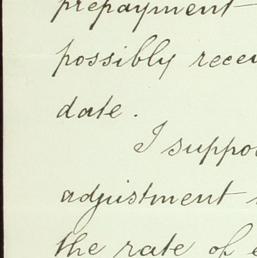 prepayment
possibly
date.
I
adjustment
the rate of